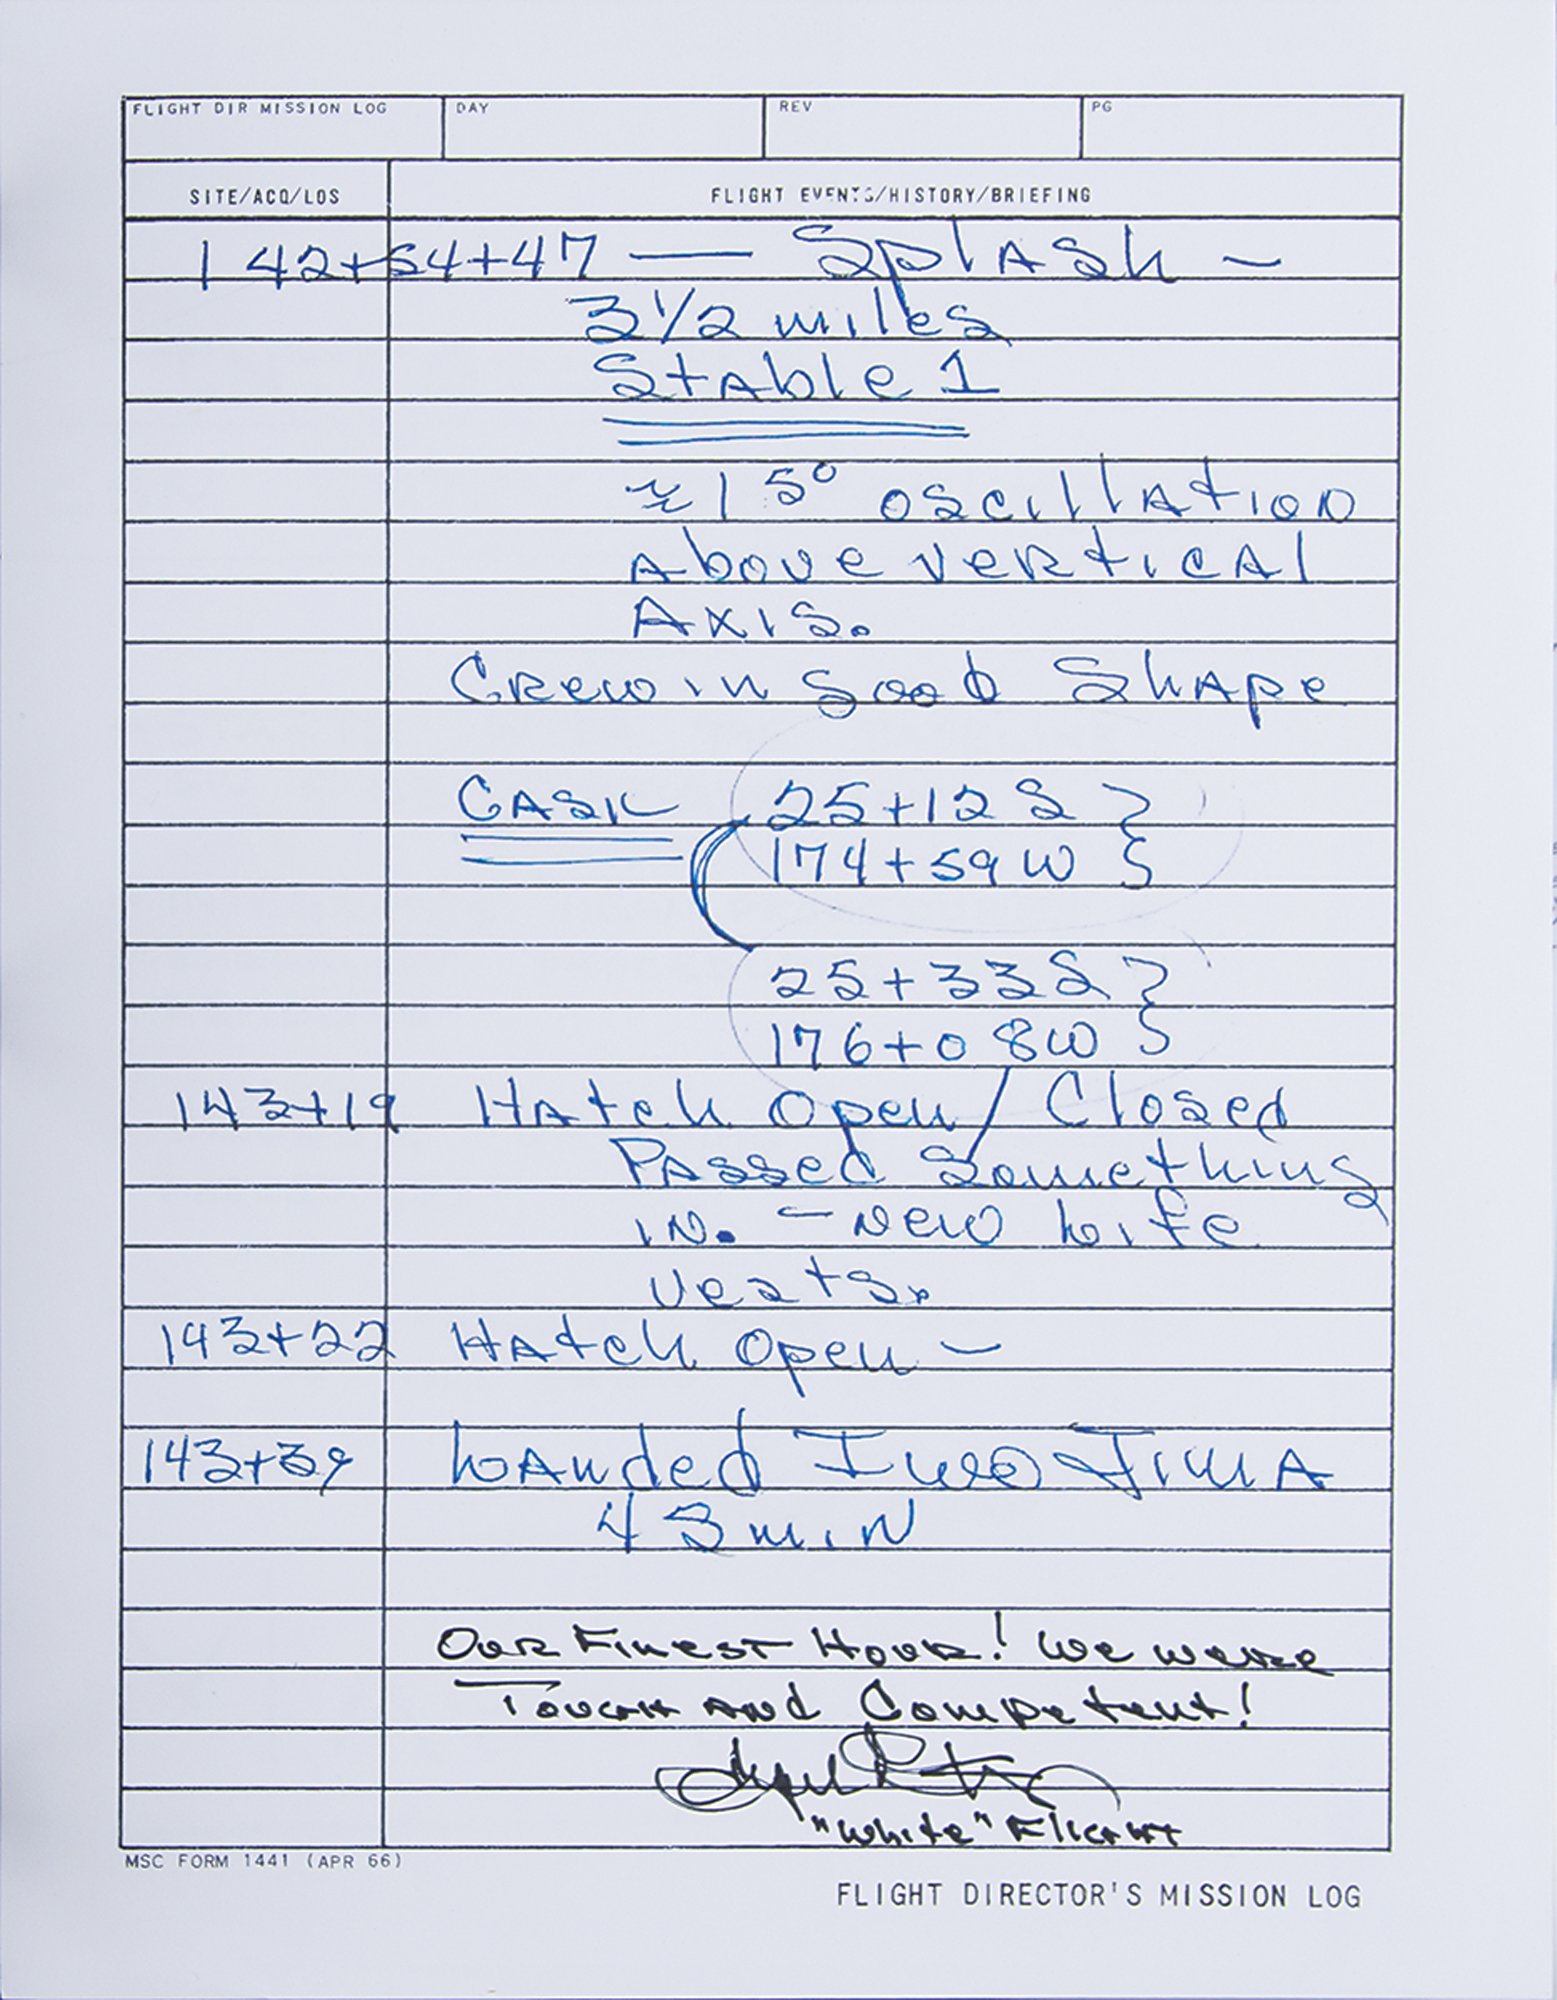 FLIGHT DIR MISSION LOG DAY REV PG
SITE/ACQ/LOS FLIGHT EVENTS/HISTORY/BRIEFING
142+54+47 — Splash –
3 1/2 miles
Stable 1
≈15° oscillation
Above vertical
Axis.
Crew in good Shape
25+12 S
174+59 W
25+33 S
176+08 W
143+19 Hatch Open / Closed
Passed Something
in. – New Life
Vests.
143+22 Hatch Open –
143+39 Landed Iwo Jima
43 min
Our Finest Hour! We were
Tough and Competent!
"White" Flight
MSC FORM 1441 (APR 66)
FLIGHT DIRECTOR'S MISSION LOG